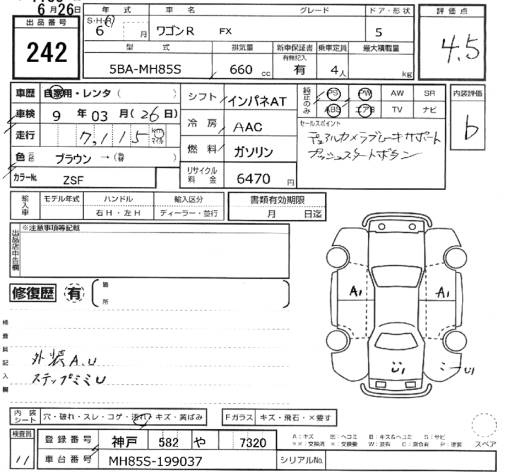 6月26日
出品番号
242
年式 車名 グレード ドア・形状 評価点
S・H・R 6 月 ワゴンR FX 5 4.5
型式 排気量 新車保証書 有無記入 乗車定員 最大積載量
5BA-MH85S 660 cc 有 4人 kg
車歴 自家用・レンタ( )
シフト インパネAT
純正のみ PS PW AW SR
ABS エアB TV ナビ
内装評価 b
車検 9年 03月(26日)
冷房 AAC
セールスポイント
デュアルカメラブレーキサポート
プッシュスタートボタン
走行 7,115 km マイル
燃料 ガソリン
色 ブラウン →(替 )
カラーNo. ZSF
リサイクル料金 6470円
輸入車 モデル年式 ハンドル 輸入区分
右H・左H ディーラー・並行
書類有効期限
月 日迄
出品店申告欄 ※注意事項等記載
修復歴 有 箇所
検査員記入欄
外装A.U
ステップミミU
A1 A1
内装シート 穴・破れ・スレ・コゲ・汚れ・キズ・黄ばみ
Fガラス キズ・飛石・×要す
検査員 11
登録番号 神戸 582 や 7320
車台番号 MH85S-199037
シリアルNo.
A:キズ U:ヘコミ B:キズ&ヘコミ S:サビ
スペア